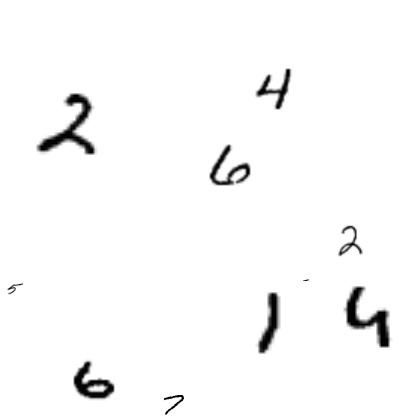 4
2
6
2
5
1 4
6
7